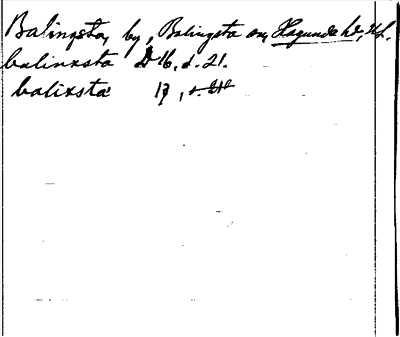 Balingsta, by, Balingsta sn, Hagunda hd, Upl.
balinxsta D 16, s. 21.
balixsta 17, s. 210